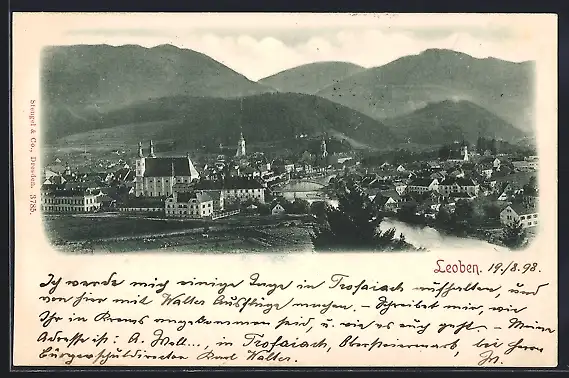 Stengel & Co., Dresden. 3785.
Leoben. 19./8. 98.
Ich werde mich einige Tage in Trofaiach aufhalten, und
von hier mit Walter Ausflüge machen. – Schreibet mir, wie
Ihr in Krems angekommen seid, u. wie es euch geht. – Meine
Adresse ist: A. Woll..., in Trofaiach, Obersteiermark, bei Herrn
Bürgerschuldirector Karl Walter.